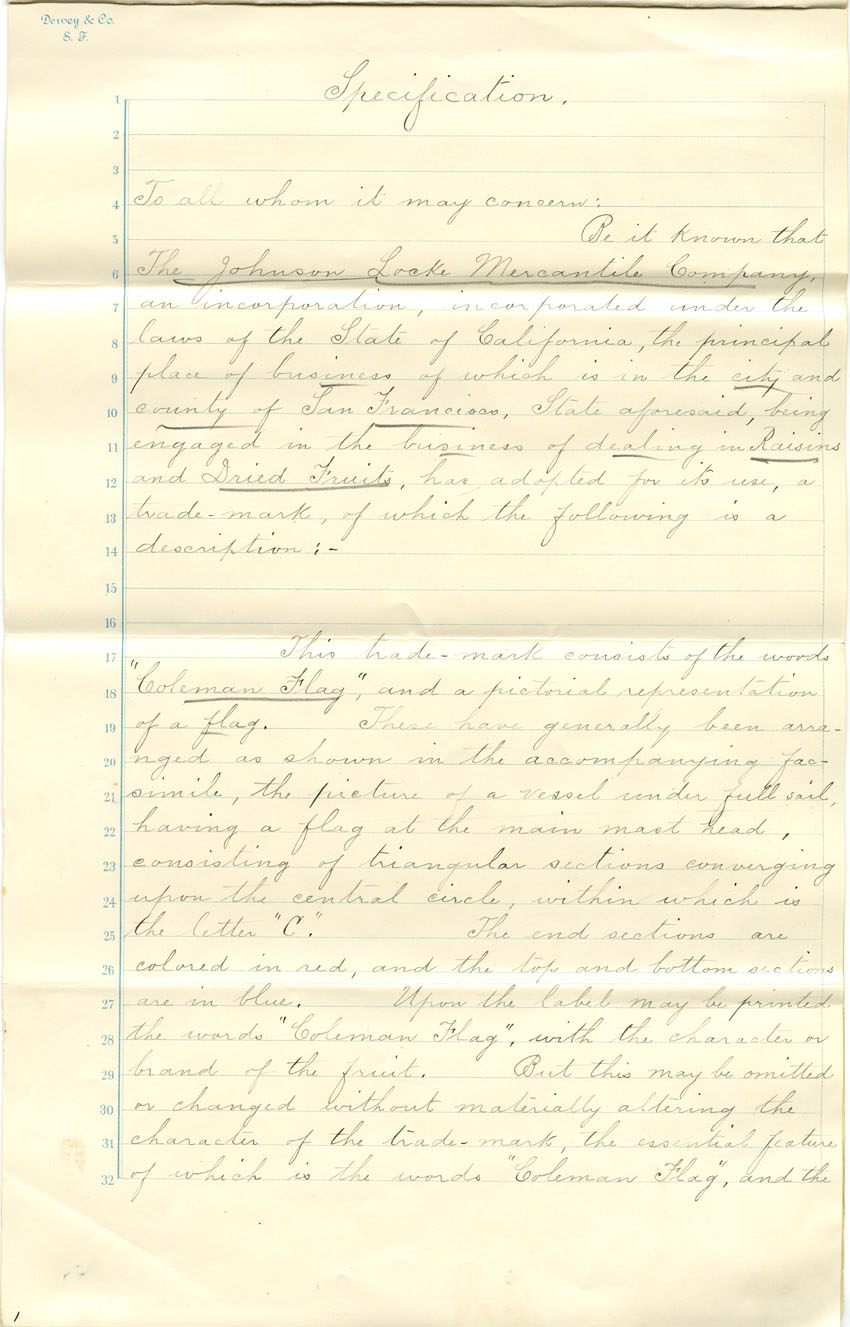 Dewey & Co.
S. F.
Specification.
1
2
3
4 To all whom it may concern:
5 Be it known that
6 The Johnson Locke Mercantile Company,
7 an incorporation, incorporated under the
8 laws of the State of California, the principal
9 place of business of which is in the city and
10 county of San Francisco, State aforesaid, being
11 engaged in the business of dealing in Raisins
12 and Dried Fruits, has adopted for its use, a
13 trade-mark, of which the following is a
14 description:-
15
16
17 This trade-mark consists of the words
18 "Coleman Flag", and a pictorial representation
19 of a flag. These have generally been arra-
20 nged as shown in the accompanying fac-
21 simile, the picture of a vessel under full sail,
22 having a flag at the main mast head,
23 consisting of triangular sections converging
24 upon the central circle, within which is
25 the letter "C." The end sections are
26 colored in red, and the top and bottom sections
27 are in blue. Upon the label may be printed
28 the words "Coleman Flag", with the character or
29 brand of the fruit. But this may be omitted
30 or changed without materially altering the
31 character of the trade-mark, the essential feature
32 of which is the words "Coleman Flag", and the
1